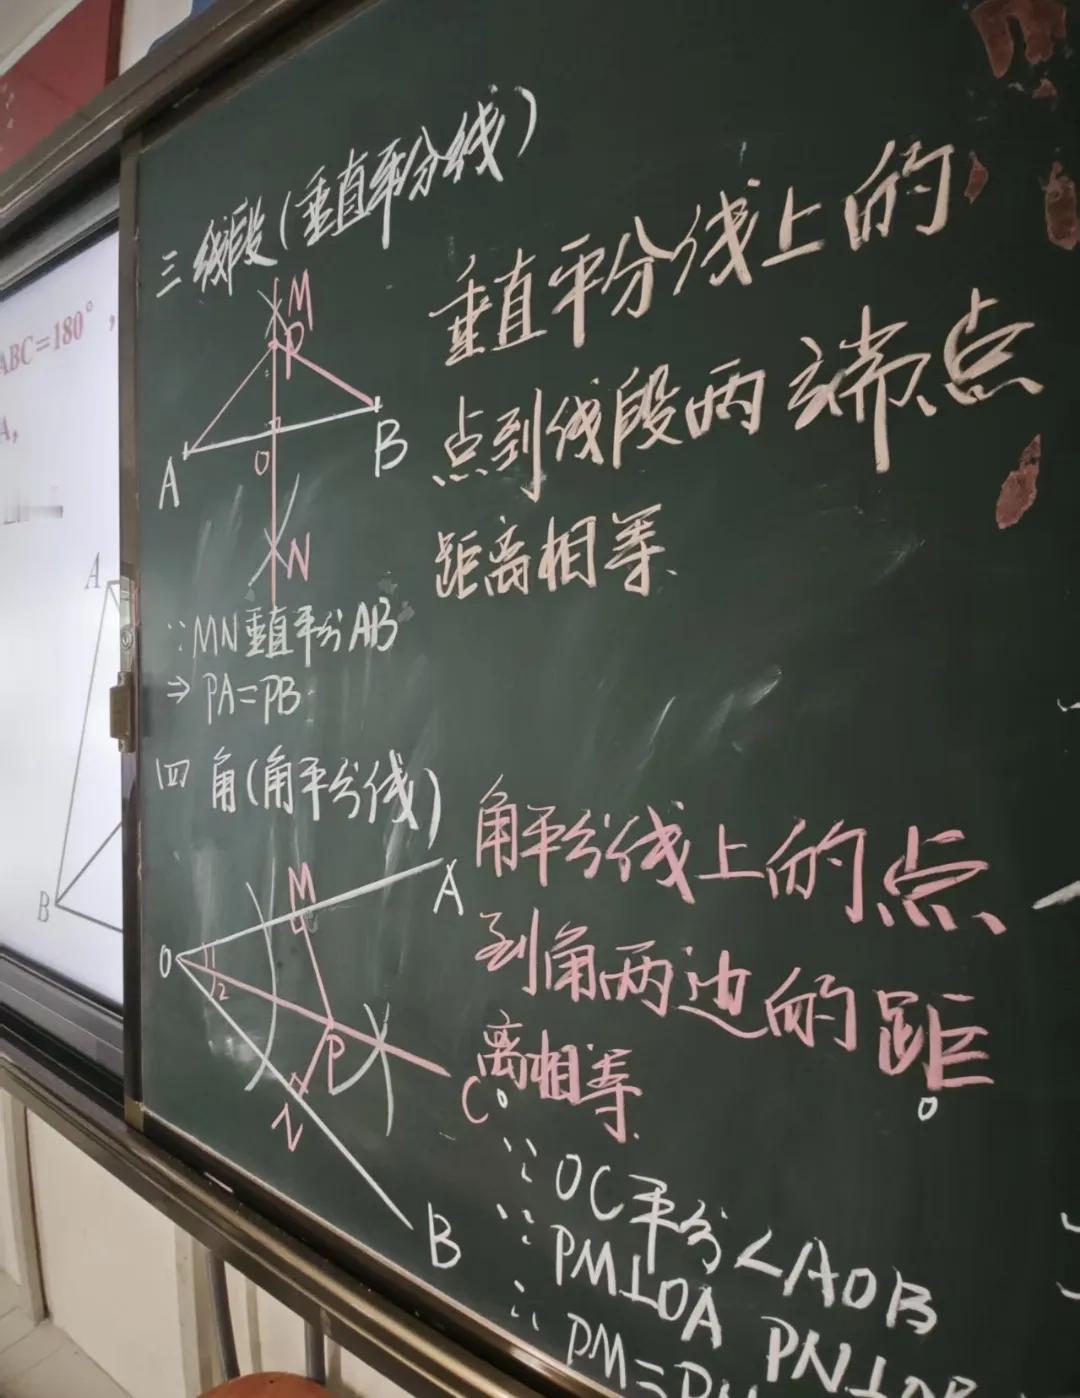 三 线段(垂直平分线)
垂直平分线上的
点到线段两端点
距离相等.
M
P
A
O
B
N
∵MN垂直平分AB
⇒ PA=PB
四 角(角平分线)
角平分线上的点
到角两边的距
离相等.
M
A
O
1
2
P
C
N
B
∵ OC平分∠AOB
∵ PM⊥OA PN⊥OB
∴ PM=PN
ABC=180°,
A,
A
B